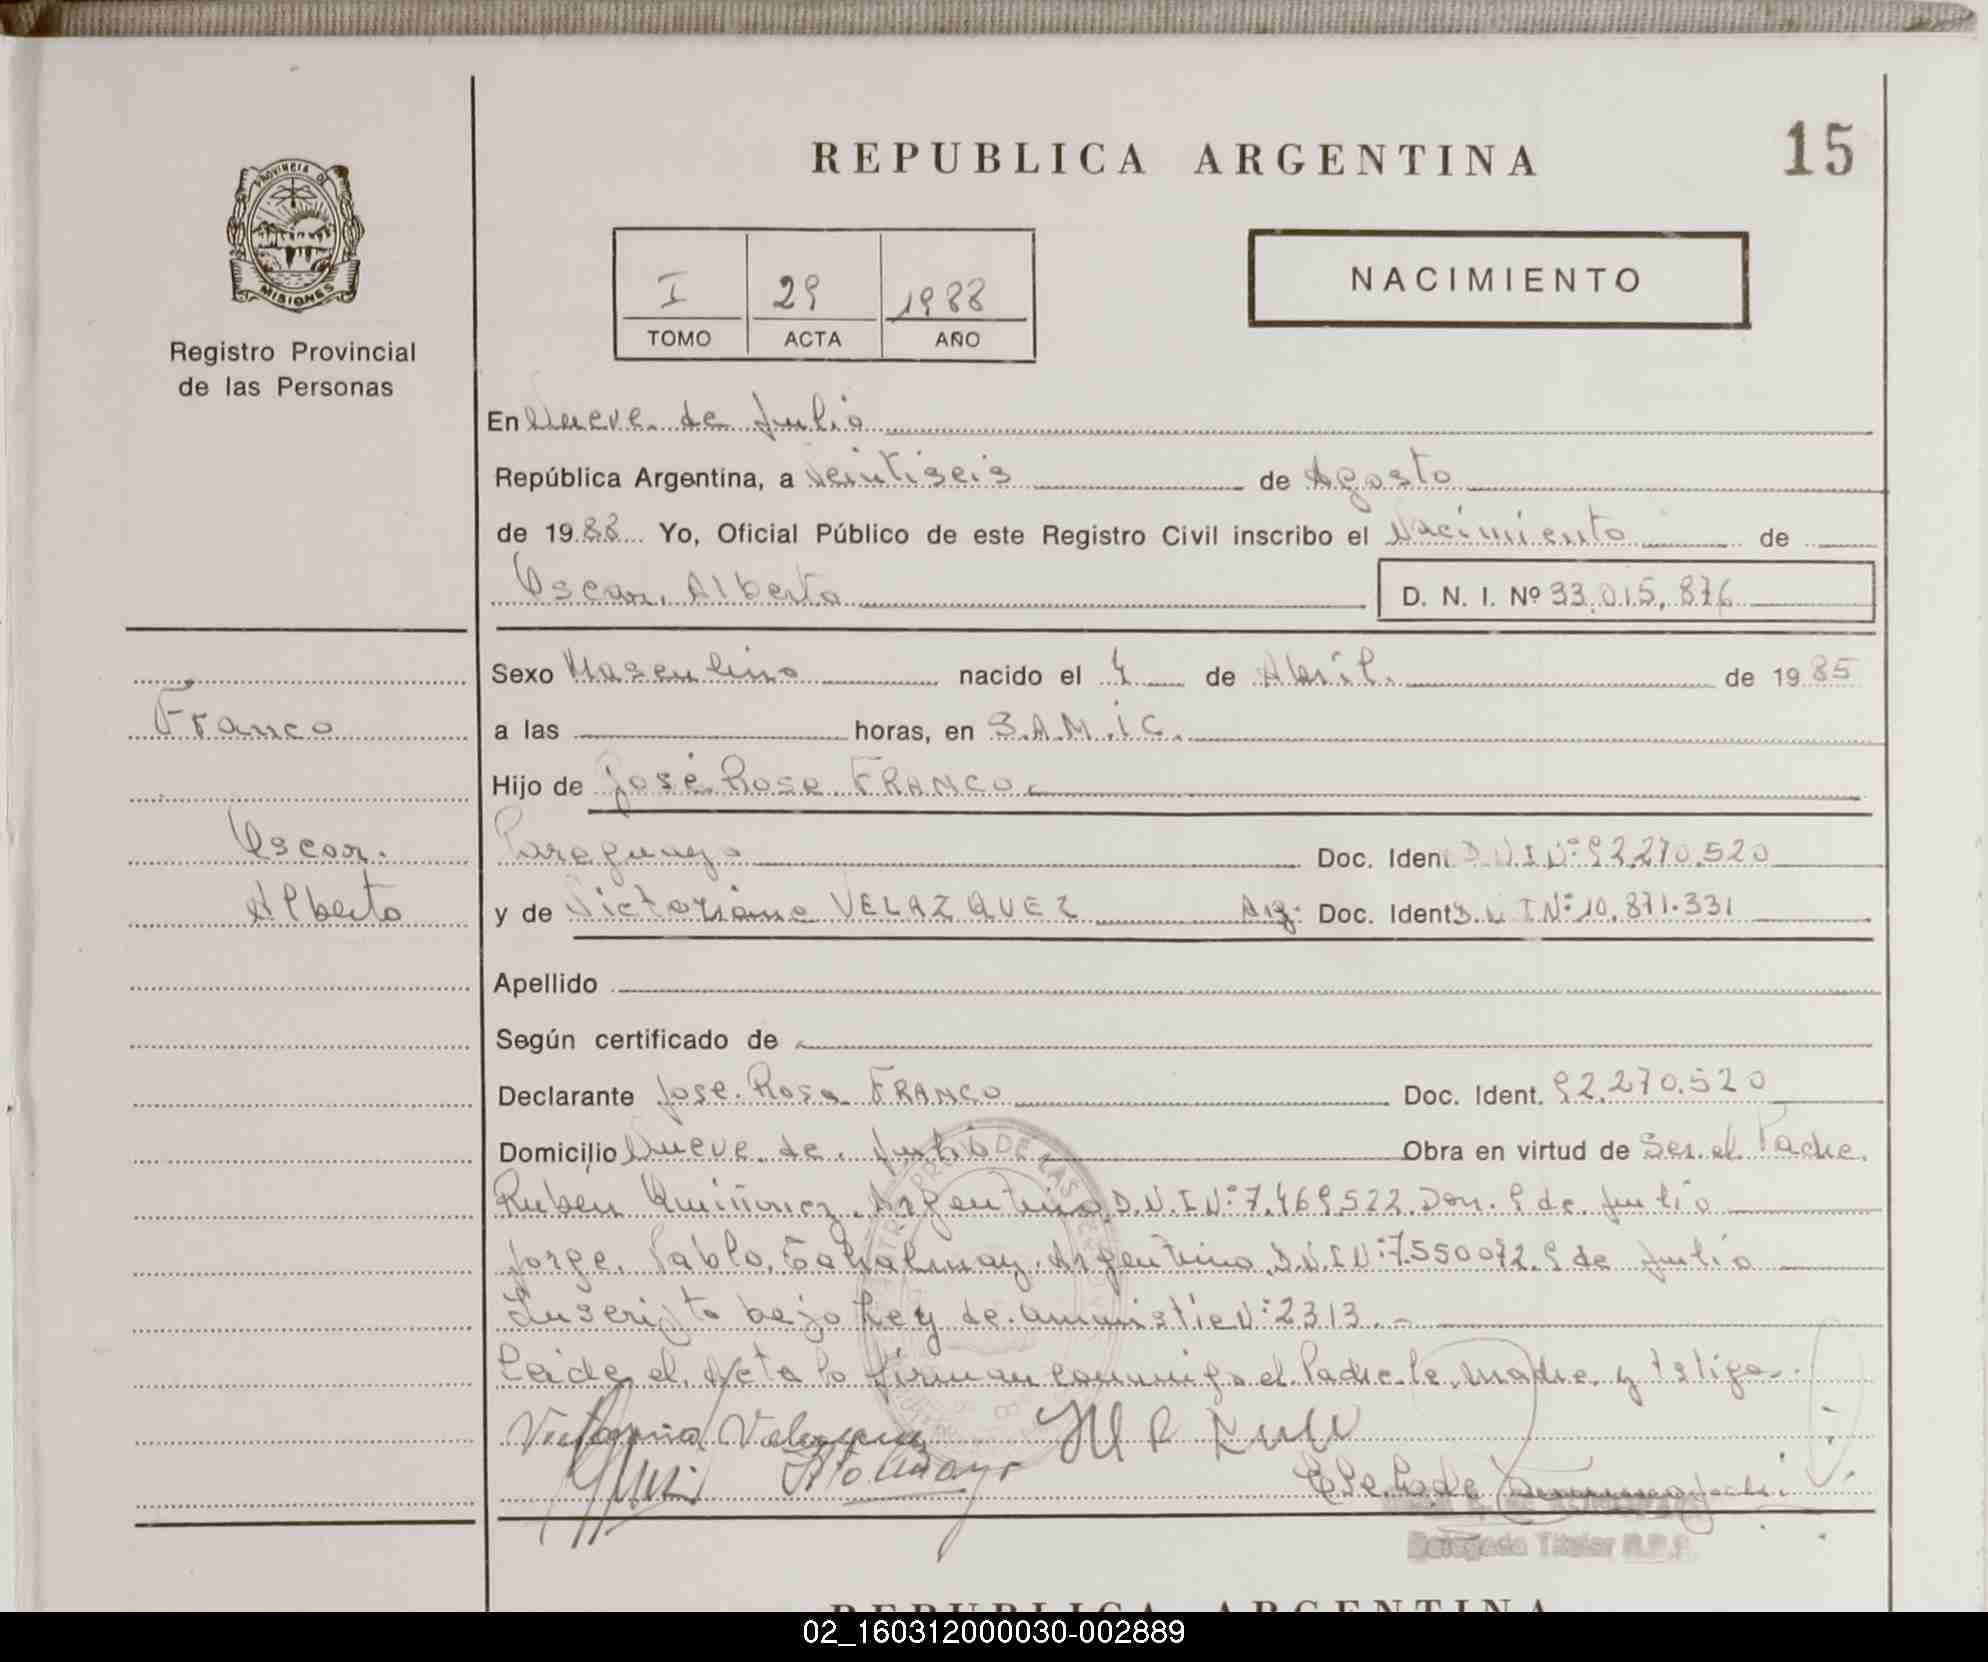 REPUBLICA ARGENTINA
15
PROVINCIA DE
MISIONES
Registro Provincial
de las Personas
I 29 1988
TOMO ACTA AÑO
NACIMIENTO
En Nueve de Julio
República Argentina, a Veintiseis de Agosto
de 1988 Yo, Oficial Público de este Registro Civil inscribo el Nacimiento de
Oscar Alberto D. N. I. Nº 33.015.876
Franco
Oscar
Alberto
Sexo Masculino nacido el 4 de Abril de 1985
a las horas, en S.A.M.I.C.
Hijo de José Rosa FRANCO
Paraguayo Doc. Ident D.N.I Nº 92.270.520
y de Victoriana VELAZQUEZ Arg. Doc. Ident D.N.I Nº 10.871.331
Apellido
Según certificado de
Declarante Jose Rosa FRANCO Doc. Ident. 92.270.520
Domicilio Nueve de Julio Obra en virtud de Ser el Padre.
Ruben Quiñonez, Argentino D.N.I Nº 7.469.522 Dom. 9 de Julio
Jorge Pablo Argentino D.N.I Nº 7.550072 9 de Julio
Inscripto bajo Ley de amnistie Nº 2313.-
Leide el Acta lo firman conmigo el Padre le madre y testigo.
Delegada Titular R.P.P.
REPUBLICA ARGENTINA
02_160312000030-002889